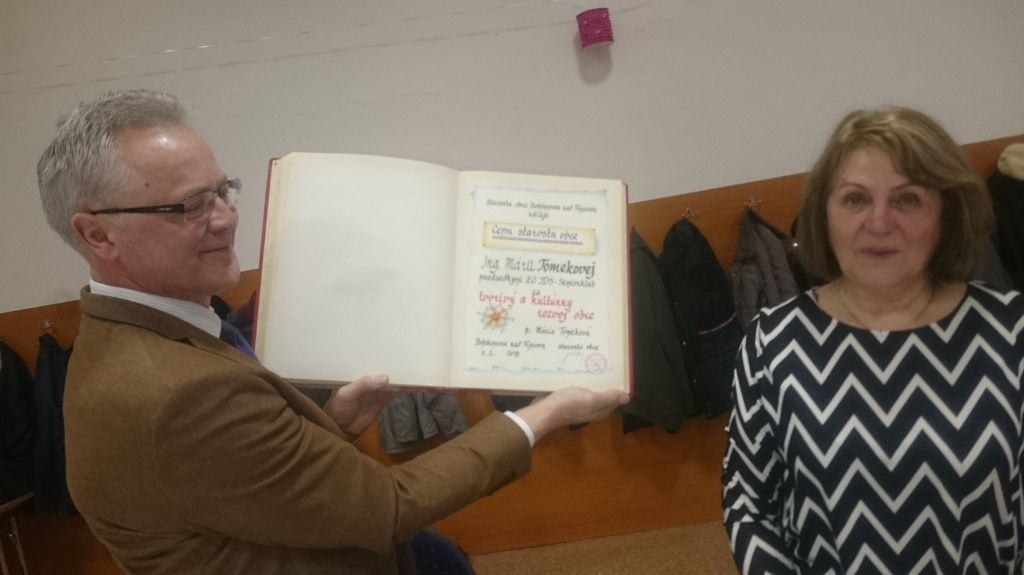 Starosta obce Bohdanovce nad Trnavou
udeľuje
Cenu starostu obce
Ing. Márii Tomekovej
predsedkyni ZO JDS - Seniorklub
za
tvorivý a kultúrny
rozvoj obce
p. Mária Tomeková
Bohdanovce nad Trnavou
starosta obce